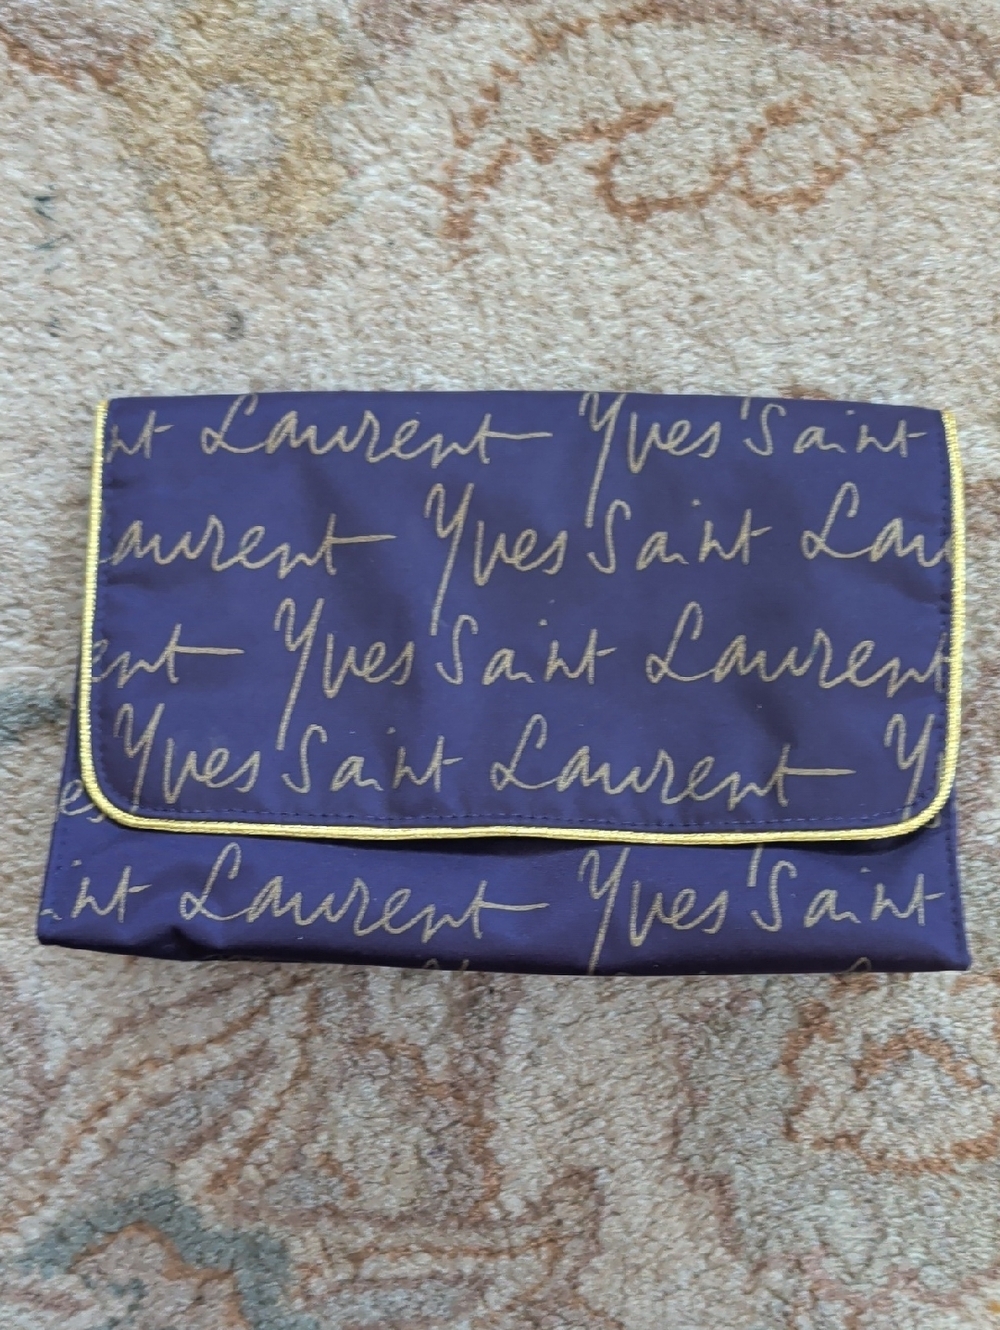 nt Laurent Yves Saint
aurent Yves Saint Lau
ent Yves Saint Laurent
Yves Saint Laurent Y
es
int Laurent Yves Saint